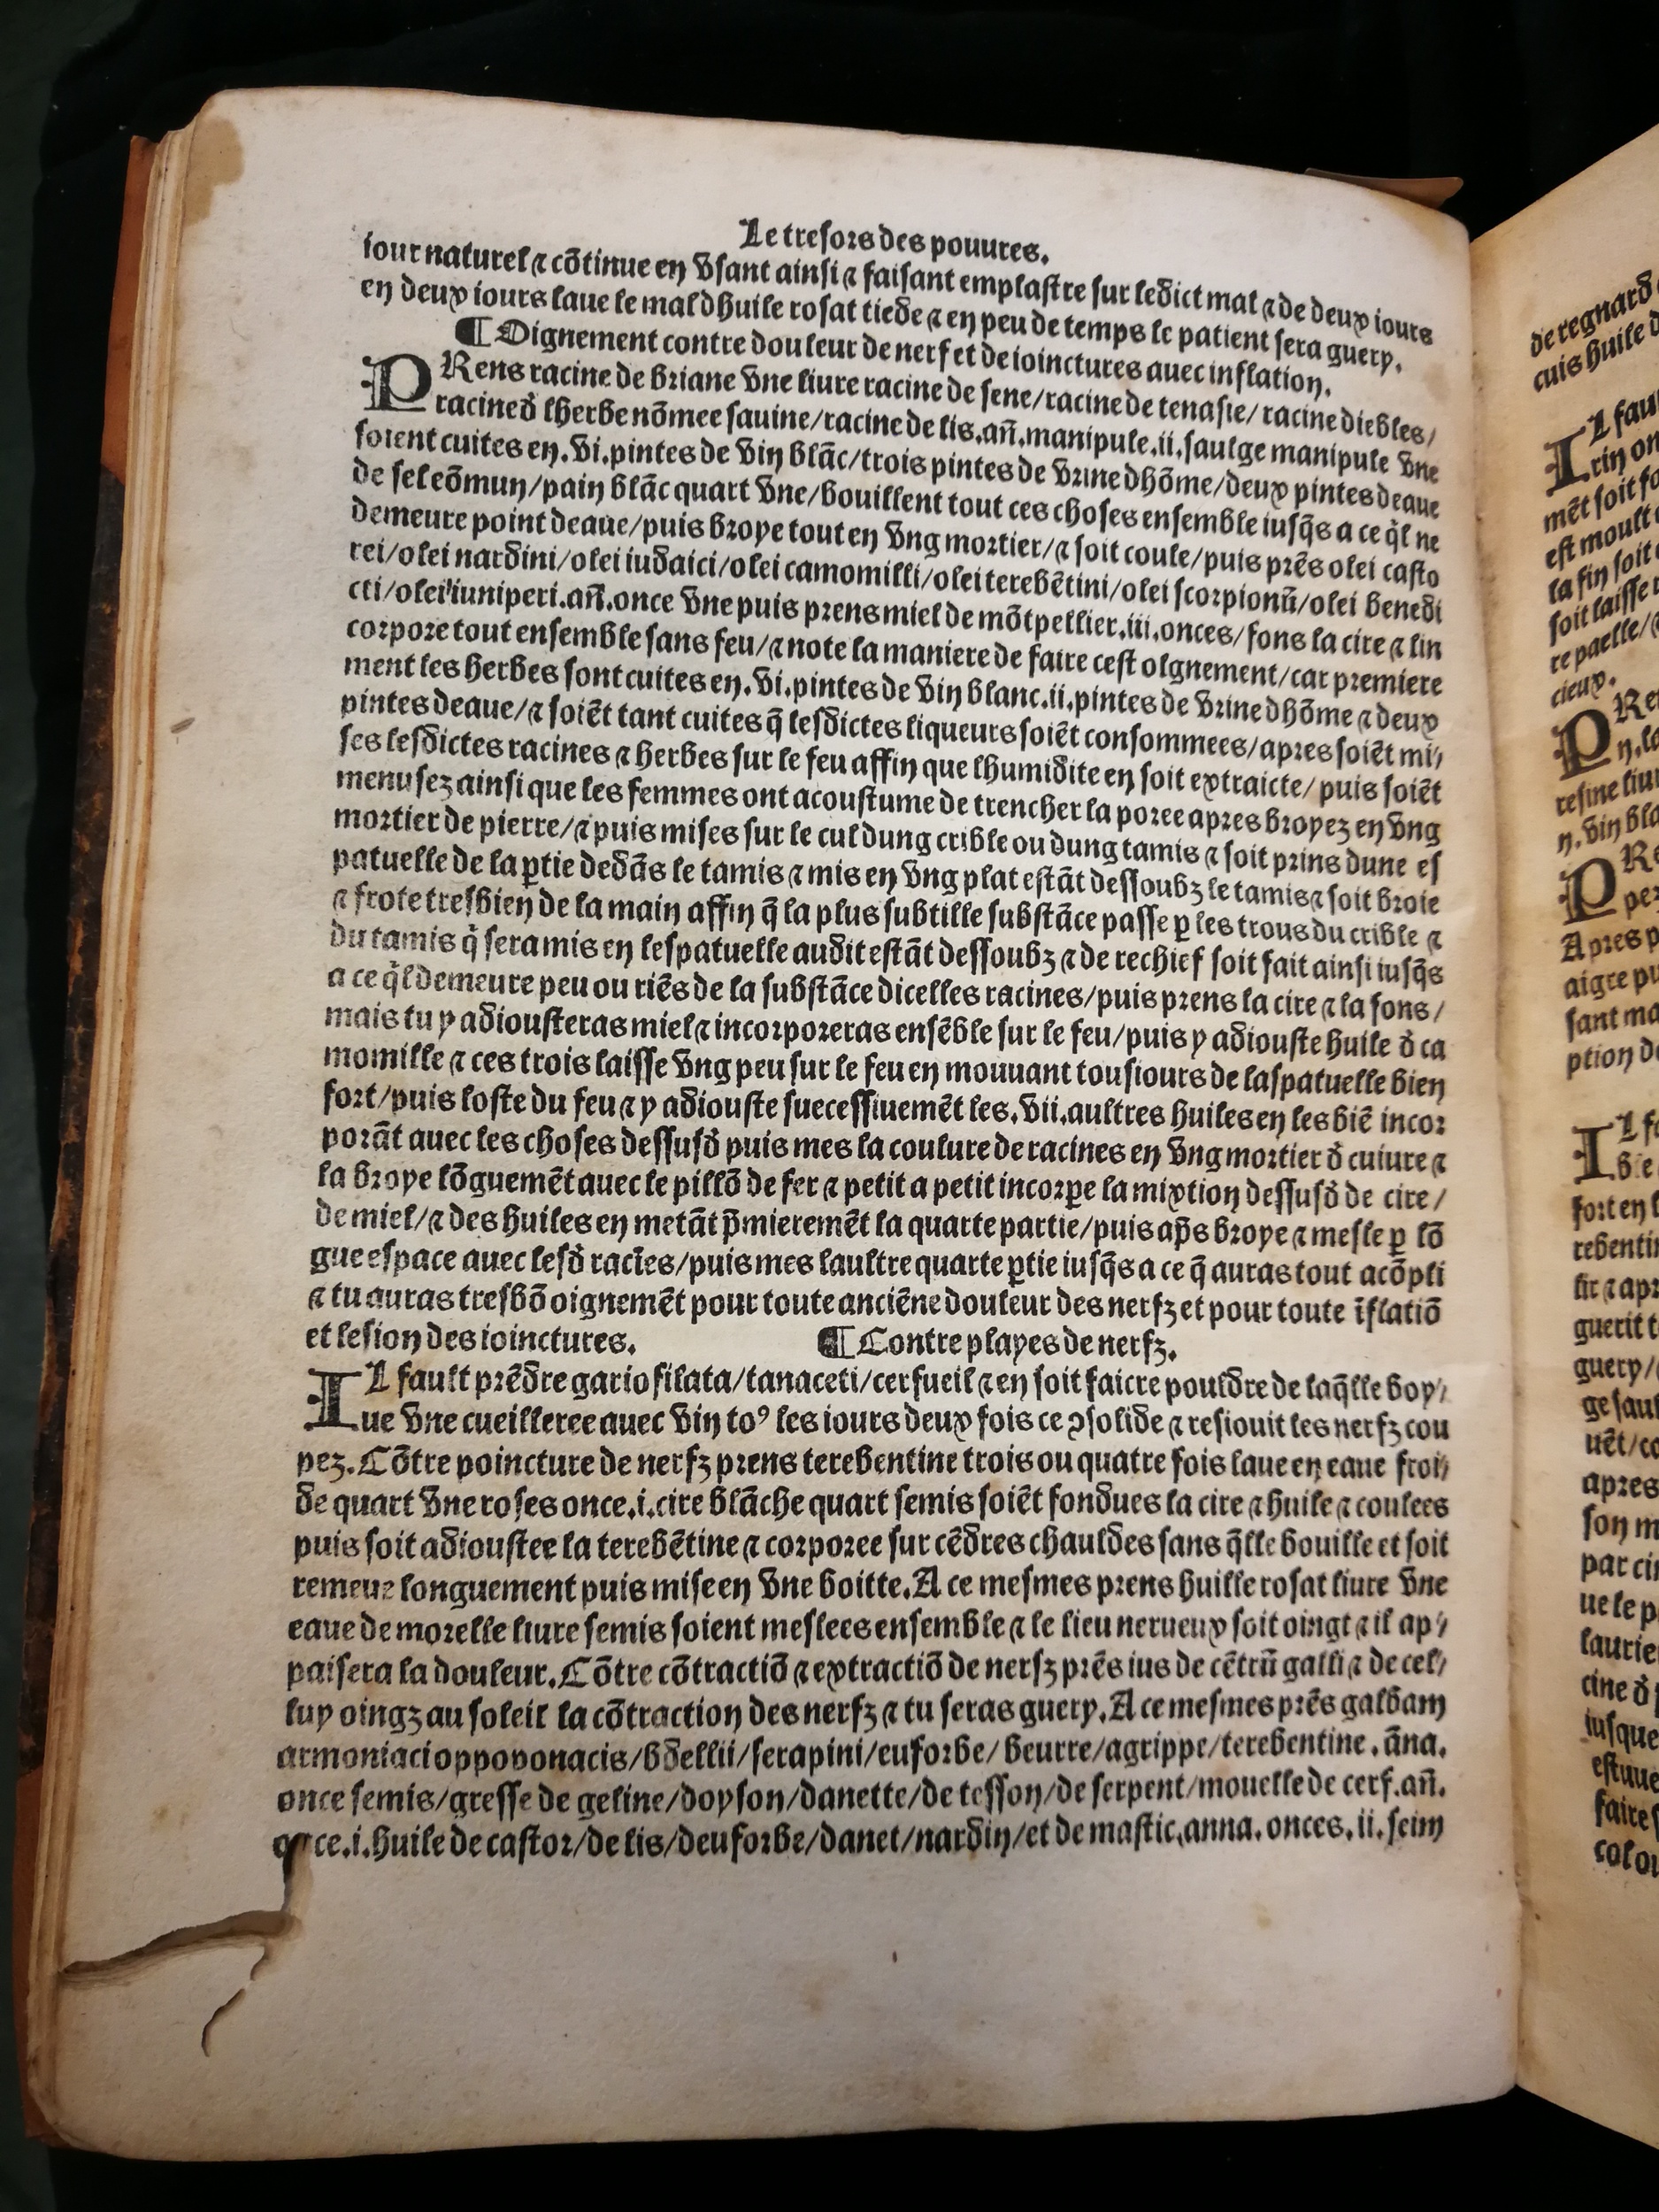 Le tresors des pouures.
iour naturel ⁊ cõtinue en vsant ainsi ⁊ faisant emplastre sur ledict mal ⁊ de deux iours
en deux iours laue le mal dhuile rosat tiede ⁊ en peu de temps le patient sera guery.
¶ Oignement contre douleur de nerf et de ioinctures auec inflation.
PRens racine de briane vne liure racine de sene/racine de tenasie/ racine diebles/
racine đ lherbe nõmee sauine/racine de lis.añ.manipule.ii.saulge manipule vne
soient cuites en.vi.pintes de vin blãc/trois pintes de vrine dhõme/deux pintes deaue
de sel cõmun/pain blãc quart vne/bouillent tout ces choses ensemble iusq̃s a ce q̃l ne
demeure point deaue/puis broye tout en vng mortier/⁊ soit coule/puis prẽs olei casto
rei/olei nardini/olei iudaici/olei camomilli/olei terebẽtini/olei scorpionũ/olei benedi
cti/olei iuniperi.añ.once vne puis prens miel de mõtpellier.iii.onces/fons la cire ⁊ lin
corpore tout ensemble sans feu/⁊ note la maniere de faire cest olgnement/car premiere
ment les herbes sont cuites en.vi.pintes de vin blanc.ii.pintes de vrine dhõme ⁊ deux
pintes deaue/⁊ soiẽt tant cuites q̃ lesdictes liqueurs soiẽt consommees/apres soiẽt mi⸗
ses lesdictes racines ⁊ herbes sur le feu affin que lhumidite en soit extraicte/puis soiẽt
menusez ainsi que les femmes ont acoustume de trencher la poree apres broyez en vng
mortier de pierre/⁊ puis mises sur le cul dung crible ou dung tamis ⁊ soit prins dune es
patuelle de la ꝑtie dedãs le tamis ⁊ mis en vng plat estãt dessoubz le tamis ⁊ soit broie
⁊ frote tresbien de la main affin q̃ la plus subtille substãce passe ꝑ les trous du crible ⁊
du tamis q̃ sera mis en lespatuelle audit estãt dessoubz ⁊ de rechief soit fait ainsi iusq̃s
a ce q̃l demeure peu ou riẽs de la substãce dicelles racines/puis prens la cire ⁊ la fons/
mais tu y adiousteras miel ⁊ incorporeras ensẽble sur le feu/puis y adiouste huile đ ca
momille ⁊ ces trois laisse vng peu sur le feu en mouuant tousiours de laspatuelle bien
fort/puis loste du feu ⁊ y adiouste suecessiuemẽt les.vii.aultres huiles en les biẽ incor
porãt auec les choses dessusđ puis mes la coulure de racines en vng mortier đ cuiure ⁊
la broye lõguemẽt auec le pillõ de fer ⁊ petit a petit incorꝑe la mixtion dessusđ de cire/
de miel/⁊ des huiles en metãt p̃mieremẽt la quarte partie/puis ap̃s broye ⁊ mesle ꝑ lõ
gue espace auec lesđ racĩes/puis mes laultre quarte ꝑtie iusq̃s a ce q̃ auras tout acõpli
⁊ tu auras tresbõ oignemẽt pour toute anciẽne douleur des nerfz et pour toute ĩflatiõ
et lesion des ioinctures. ¶ Contre playes de nerfz.
IL fault prẽdre gariofilata/tanaceti/cerfueil ⁊ en soit faicre pouldre de laq̃lle boy⸗
ue vne cueilleree auec vin toꝰ les iours deux fois ce ɔsolide ⁊ resiouit les nerfz cou
pez. Cõtre poincture de nerfz prens terebentine trois ou quatre fois laue en eaue froi⸗
de quart vne roses once.i.cire blãche quart semis soiẽt fondues la cire ⁊ huile ⁊ coulees
puis soit adioustee la terebẽtine ⁊ corporee sur cẽdres chauldes sans q̃lle bouille et soit
remeue longuement puis mise en vne boitte. A ce mesmes prens huille rosat liure vne
eaue de morelle liure semis soient meslees ensemble ⁊ le lieu nerueux soit oingt ⁊ il ap⸗
paisera la douleur. Cõtre cõtractiõ ⁊ extractiõ de nerfz prẽs ius de cẽtrũ galli ⁊ de cel⸗
luy oingz au soleil la cõtraction des nerfz ⁊ tu seras guery. A ce mesmes prẽs galbam
armoniaci oppoponacis/bdellii/serapini/euforbe/ beurre/agrippe/terebentine.ãna.
once semis/gresse de geline/doyson/danette/de tesson/de serpent/mouelle de cerf.añ.
once.i.huile de castor/de lis/deuforbe/danet/nardin/et de mastic.anna.onces.ii.seim